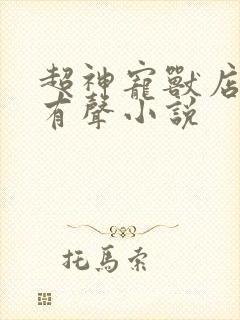 超神寵獸店
有聲小說
托馬索